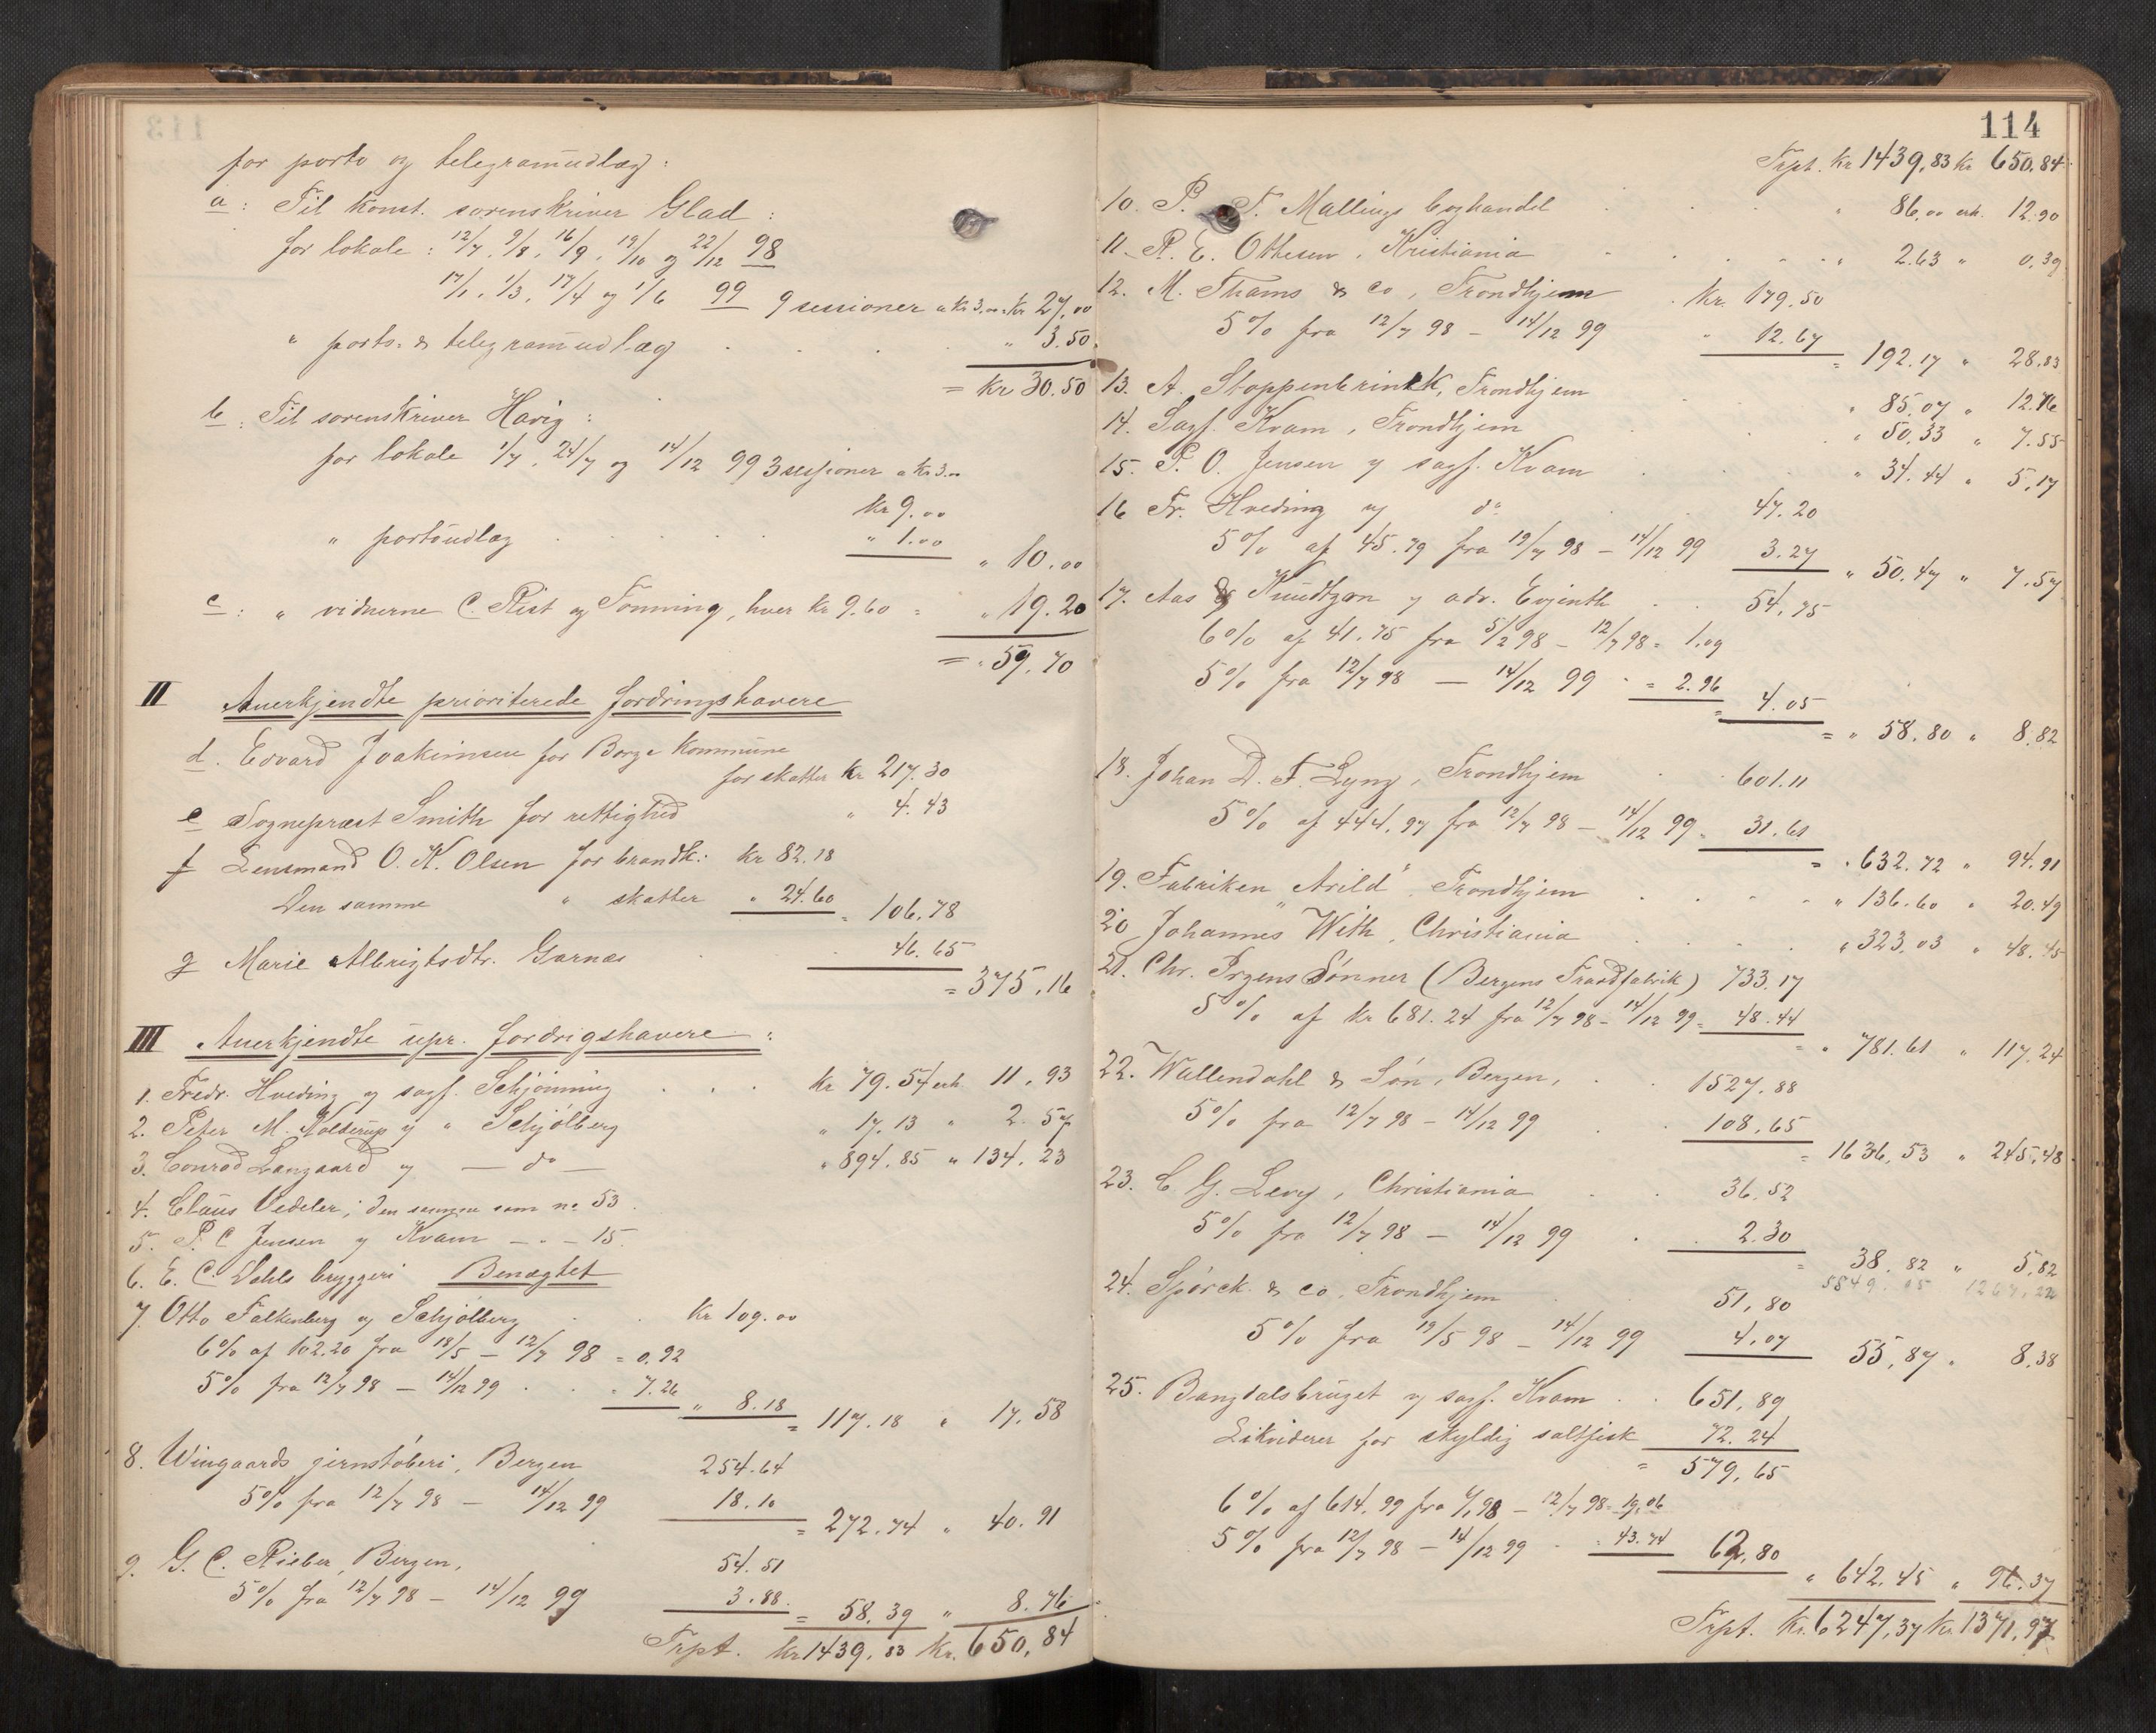 for porto og telegramudlæg:
a: Til konst. sorenskriver Glad:
for lokale: 12/7, 9/8, 16/9, 19/10 og 22/12 98
17/1, 1/3, 17/4 og 1/6 99 9 sessioner a kr 3.00 = kr 27,00
" porto- & telegramudlæg . . . " 3.50
= kr 30.50
b: Til sorenskriver Havig:
for lokale 1/7, 24/7 og 14/12 99 3 sessioner a kr 3.00
kr 9.00
" portoudlæg . . . . . " 1.00 " 10.00
c: " vidnerne C. Rist og Fønning, hver kr 9.60 = " 19.20
= " 59.70
II Anerkjendte prioriterede fordringshavere
d. Edvard Joakimsen for Borge kommune
for skatter kr 217.30
e Sogneprest Smith for rettighed " 4.43
f Lensmand O. K. Olsen for brandk: kr 82.18
Den samme " skatter " 24.60 = 106.78
g Marie Albrigtsdtr. Garnæs . . 46.65
= 375,16
III Anerkjendte upr. fordrigshavere:
1. Fredr. Hveding og sagf. Schjønning . . . kr 79.54 erh. 11,93
2. Peter M. Kolderup og " Schjølberg " 17.13 " 2.57
3. Conrad Langaard og — do — " 894.85 " 134.23
4. Claus Vedeler; den samme som no 53.
5. P. C. Jensen og Kvam — " — 15.
6. E. C. Dahls bryggeri Benægtet
7. Otto Falkenberg og Schjølberg . . kr 109.00
6% af 102.20 fra 18/5 — 12/7 98 = 0.92
5% fra 12/7 98 — 14/12 99 . . " 7.26 " 8.18 = 117.18 " 17.58
8. Wingaards jernstøberi, Bergen 254.64
5% fra 12/7 98 — 14/12 99 18.10 = 272.74 " 40.91
9. G. C. Rieber, Bergen, 54.51
5% fra 12/7 98 — 14/12 99 3.88 = 58.39 " 8.76
Trpt. kr 1439.83 kr. 650,84
114
Trpt. kr 1439,83 kr 650,84
10. P. T. Mallings boghandel . . " 86,00 erh. 12.90
11. R. E. Ottesen, Kristiania . . . . . " 2.63 " 0.39
12. M. Thams & co, Trondhjem . kr. 179.50
5% fra 12/7 98 — 14/12 99 " 12.67 = 192.17 " 28.83
13. A. Stoppenbrinck, Trondhjem . " 85.07 " 12.76
14. Sagf. Kvam, Trondhjem . . " 50.33 " 7.55
15. P. O. Jensen og sagf. Kvam . . " 34.44 " 5.17
16 Fr. Hveding og do . 47.20
5% af 45.79 fra 19/7 98 — 14/12 99 3.27 " 50.47 " 7.57
17. Aas & Knudtzon og adv. Evjenth . . 54,75
6% af 41.75 fra 5/2 98 — 12/7 98 = 1.09
5% fra 12/7 98 — 14/12 99 . = 2.96 = 4.05
= " 58.80 " 8.82
18. Johan D. F. Lyng, Trondhjem . . 601.11
5% af 444.97 fra 12/7 98 — 14/12 99 = 31.61
= " 632.72 " 94.91
19. Fabriken "Arild" Trondhjem . . . . " 136.60 " 20.49
20 Johannes With, Christiania . . . . " 323,03 " 48.45
21. Chr. Irgens Sønner (Bergens Traadfabrik) 733.17
5% af kr 681.24 fra 12/7 98 — 14/12 99 = 48.44
= " 781.61 " 117.24
22. Wallendahl & Søn, Bergen, . . 1527.88
5% fra 12/7 98 — 14/12 99 . . 108.65
= 1636,53 " 245,48
23. C. G. Levy, Christiania . . 36.52
5% fra 12/7 98 — 14/12 99 . . 2.30
= 38.82 " 5,82
24. Spørck & co, Trondhjem . . 51,80
5% fra 19/5 98 — 14/12 99 4.07 55,87 " 8.38
25. Bangdalsbruget og sagf. Kvam . . 651,89
Likviderer for skyldig saltfisk 72.24
= 579,65
6% af 614.99 fra 1/1 98 — 12/7 98 = 19.06
5% fra 12/7 98 — 14/12 99 . = 43.74 62,80
" 642.45 " 96.37
Trpt. kr. 6247,37 kr. 1371,97